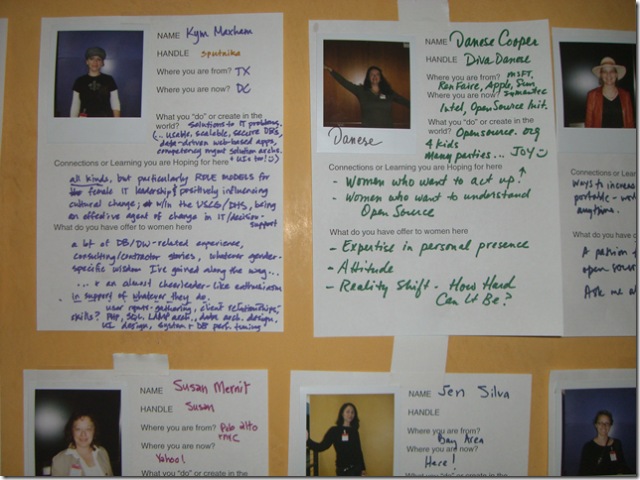 NAME Kym Maxham
HANDLE sputnika
Where you are from? TX
Where you are now? DC
What you "do" or create in the
world? Solutions to IT problems.
(... usable, scalable, secure DBS,
data-driven web-based apps,
competency mgmt solution archs.
+ UIs too! :)
Connections or Learning you are Hoping for here
all kinds, but particularly ROLE MODELS for
female IT leadership & positively influencing
cultural change, w/in the USCG/DHS, being
an effective agent of change in IT/decision-
support
What do you have offer to women here
a lot of DB/DW-related experience,
consulting/contractor stories, whatever gender-
specific wisdom I've gained along the way...
... + an almost cheerleader-like enthusiasm
in support of whatever they do.
skills? user rqmts-gathering, client relationships,
PHP, SQL, LAMP arch., data arch. design,
UI design, system + DB perf. tuning
Danese
NAME Danese Cooper
HANDLE Diva Danese
Where you are from? MSFT,
Ren Faire, Apple, Sun,
Where you are now? Symantec
Intel, Open Source Init.
What you "do" or create in the
world? Opensource.org
4 kids
many parties... JOY
Connections or Learning you are Hoping for here
- Women who want to act up!
- Women who want to understand
Open Source
What do you have offer to women here
- Expertise in personal presence
- Attitude
- Reality Shift - How Hard
Can It Be?
Connections or
Ways to incre
portable -
anything.
What do you have
A passion
open sour
Ask me a
NAME Susan Mernit
HANDLE Susan
Where you are from? Palo alto
Where you are now?
Yahoo!
What you "do" or create in the
NAME Jen Silva
HANDLE
Where you are from?
Bay Area
Where you are now?
Here!
What you "do" or create in the